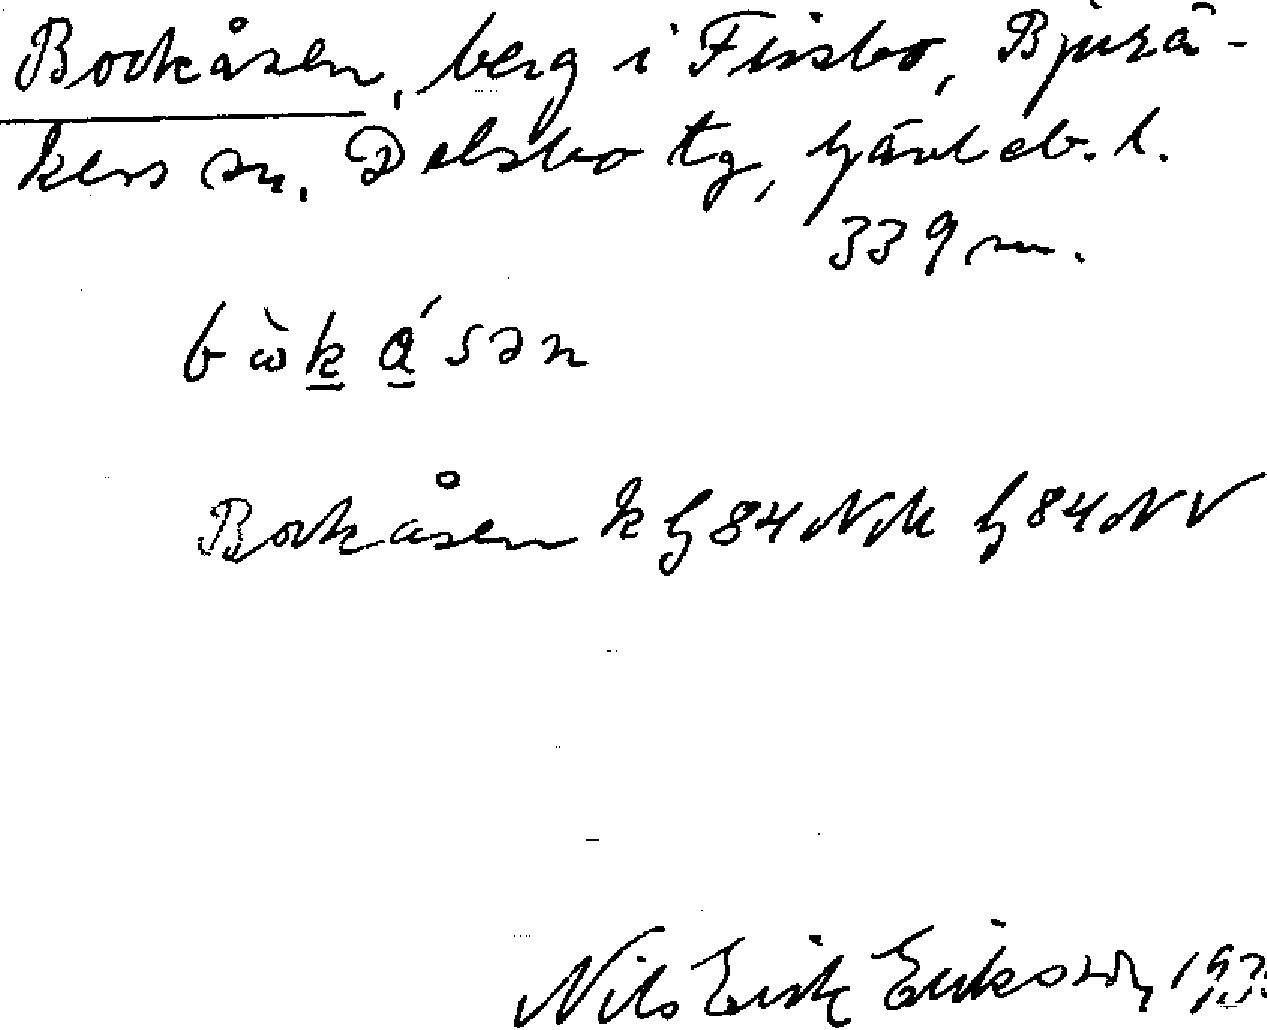 Bockåsen, berg i Fissbo, Bjurå-
kers sn, Delsbo tg, Gävleb. l.
339 m.
bὼk ásən
Bockåsen k G 84 NM G 84 NV
Nils Erik Eriksson, 193